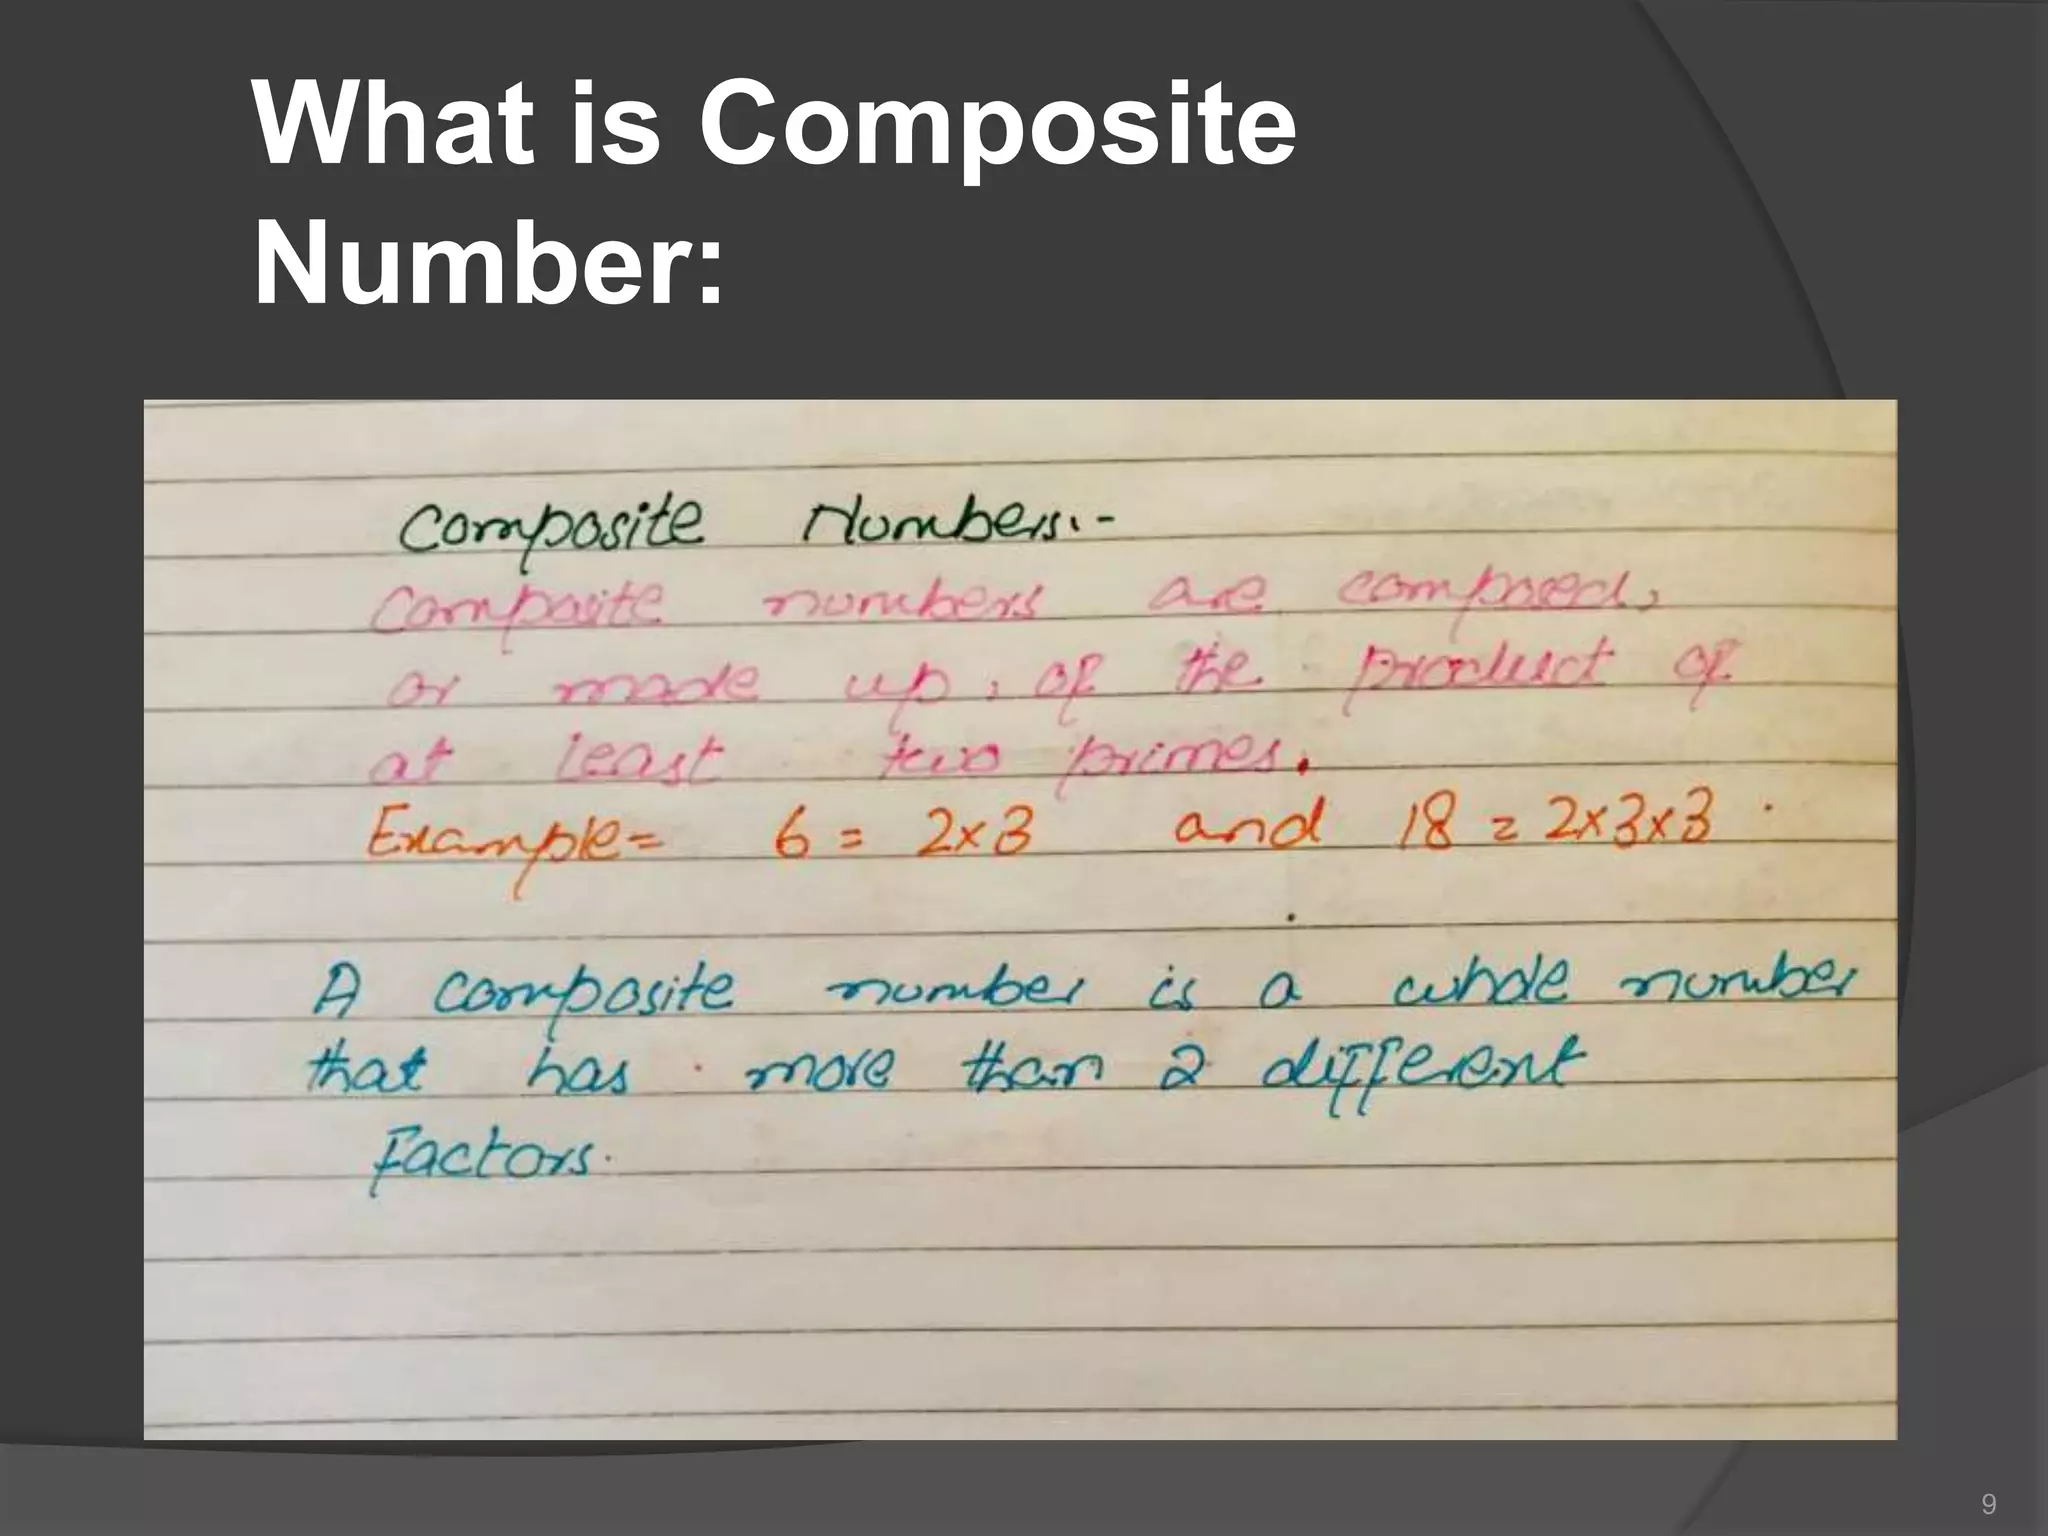 What is Composite
Number:
Composite Numbers:-
Composite numbers are composed,
or made up, of the product of
at least two primes.
Example= 6 = 2x3 and 18 = 2x3x3
A composite number is a whole number
that has more than 2 different
Factors.
9